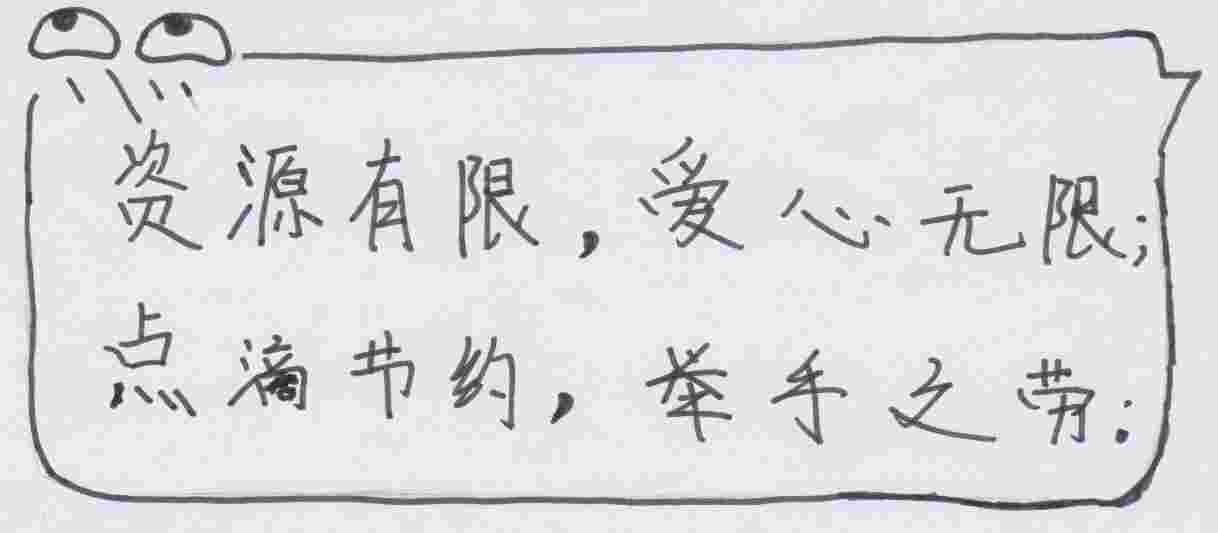 资源有限，爱心无限；
点滴节约，举手之劳：